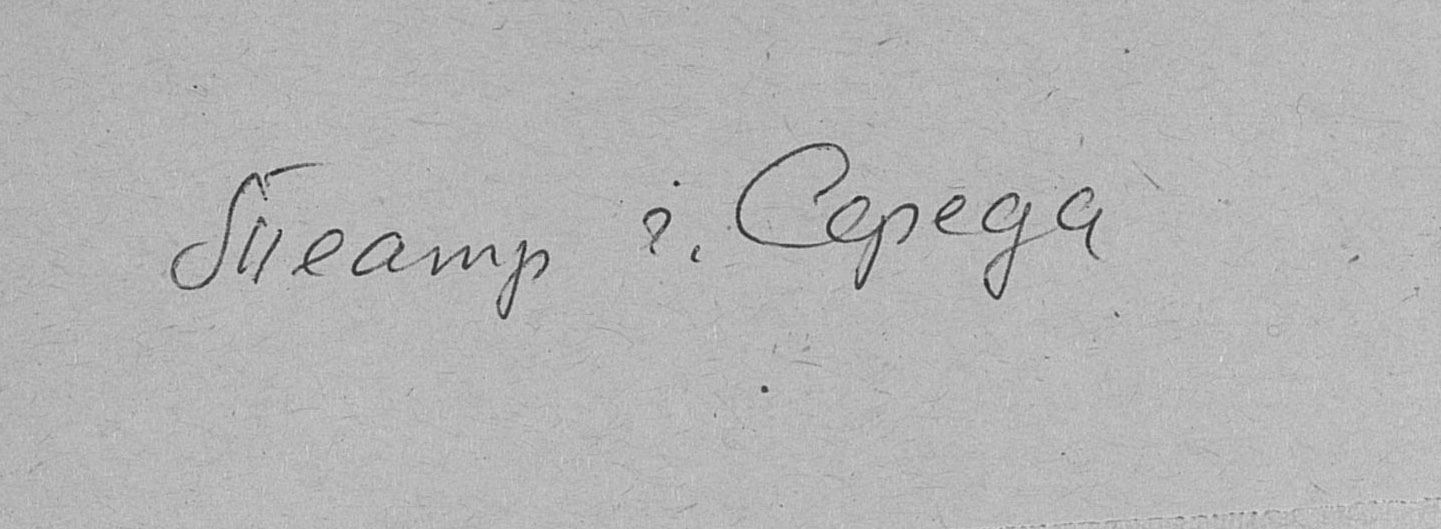 Театр г. Середа